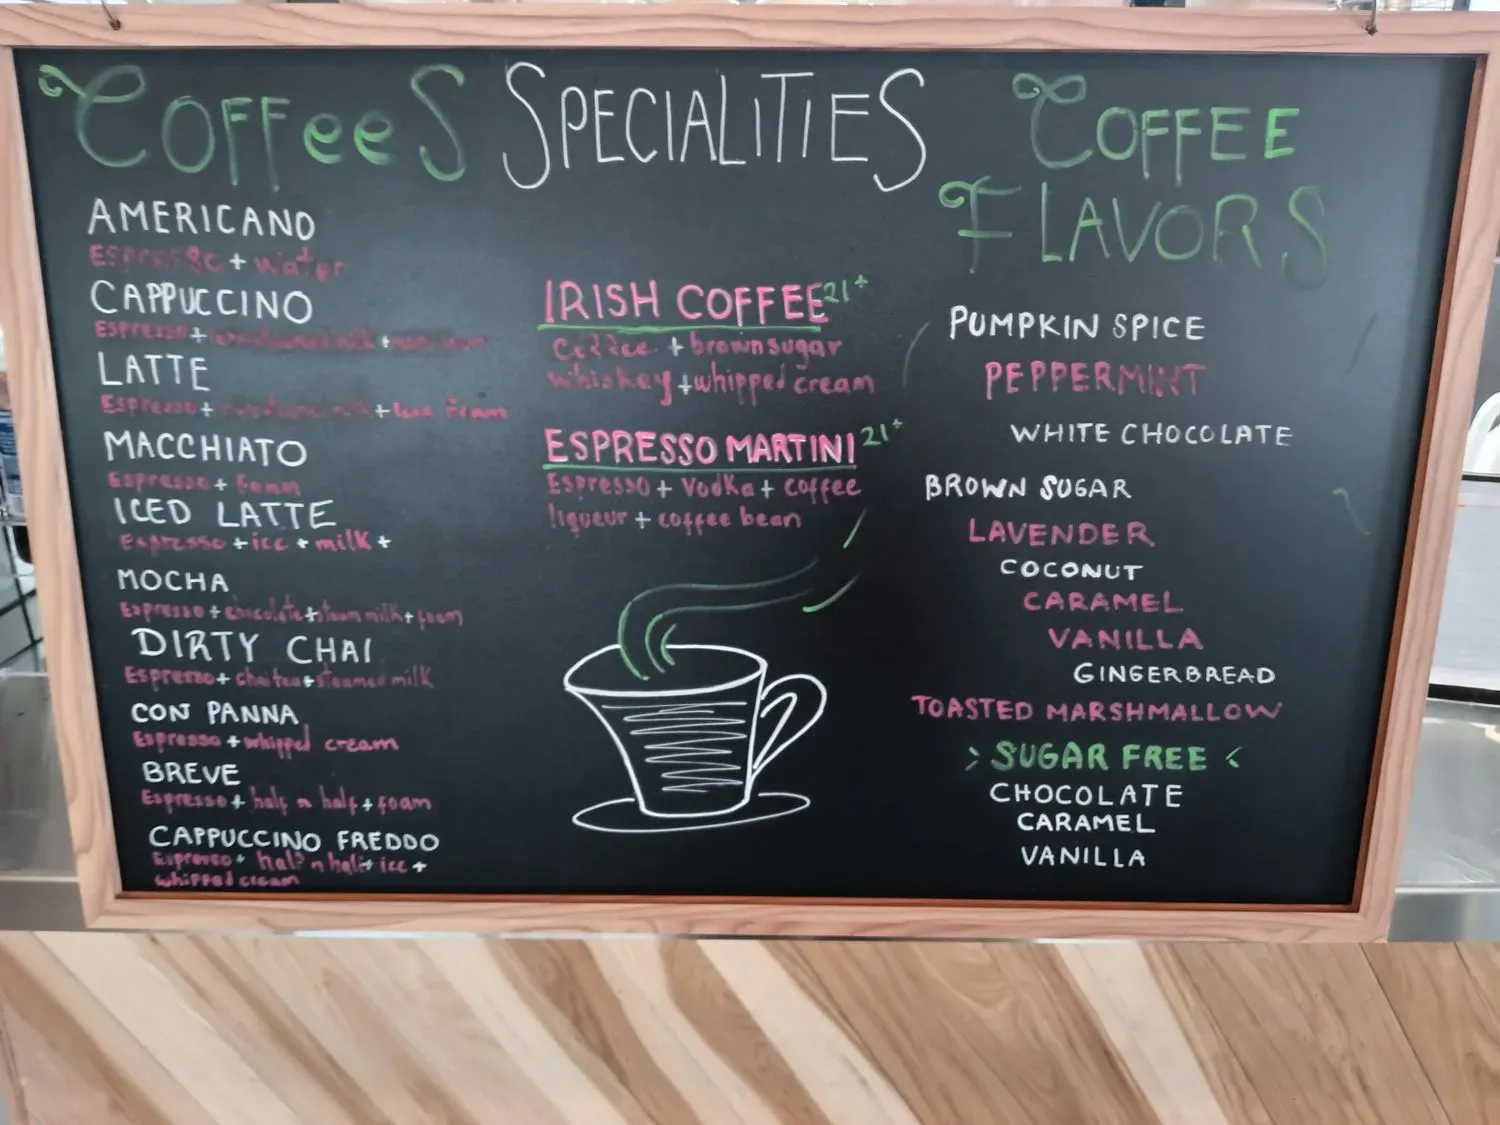 COFFeeS
AMERICANO
Espresso + water
CAPPUCCINO
Espresso + milk +
LATTE
Espresso + milk + less foam
MACCHIATO
Espresso + Foam
ICED LATTE
Espresso + ice + milk +
MOCHA
Espresso + chocolate + steam milk + foam
DIRTY CHAI
Espresso + chai tea + steamed milk
CON PANNA
Espresso + whipped cream
BREVE
Espresso + half n half + foam
CAPPUCCINO FREDDO
Espresso + half n half + ice +
whipped cream
SPECIALITIES
IRISH COFFEE 21+
Coffee + brown sugar
whiskey + whipped cream
ESPRESSO MARTINI 21+
Espresso + Vodka + coffee
liqueur + coffee bean
COFFEE
FLAVORS
PUMPKIN SPICE
PEPPERMINT
WHITE CHOCOLATE
BROWN SUGAR
LAVENDER
COCONUT
CARAMEL
VANILLA
GINGERBREAD
TOASTED MARSHMALLOW
> SUGAR FREE <
CHOCOLATE
CARAMEL
VANILLA